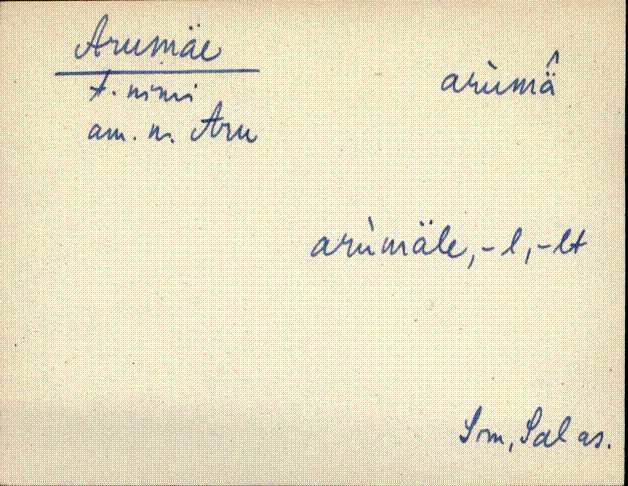 Arumäe
t. nimi
am. n. Aru
arùmä̂
arùmäle, -l, -lt
Sm, Sal as.